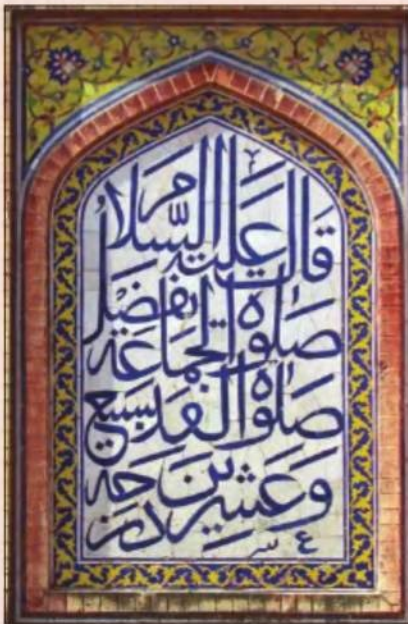 قال عليه السلام
صلوة الجماعة تفضل
صلاة الفذ بسبع
وعشرين درجة